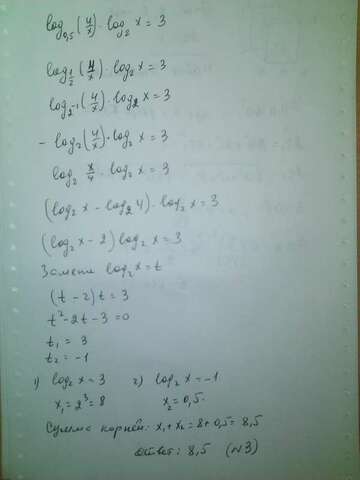 log₀,₅(4/x)·log₂ x = 3
log½(4/x)·log₂ x = 3
log₂₋₁(4/x)·log₂ x = 3
- log₂(4/x)·log₂ x = 3
log₂ x/4 · log₂ x = 3
(log₂ x - log₂ 4)·log₂ x = 3
(log₂ x - 2) log₂ x = 3
Замени log₂ x = t
(t - 2) t = 3
t² - 2t - 3 = 0
t₁ = 3
t₂ = -1
1) log₂ x = 3 2) log₂ x = -1
x₁ = 2³ = 8 x₂ = 0,5.
Сумма корней: x₁ + x₂ = 8 + 0,5 = 8,5
Ответ: 8,5 (№3)